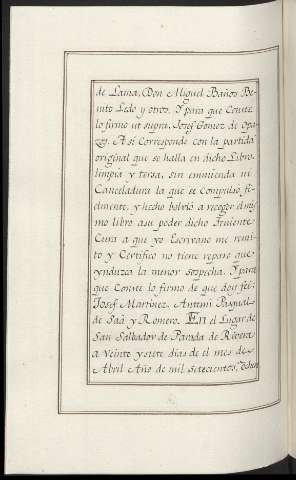 de Lama, Don Miguel Baños Be-
nito Ledo y otros. Y para que Conste
lo firmo ut supra. Josef Gomez de Opa-
zos. Asi Corresponde con la partida
original que se halla en dicho Libro,
limpia y tersa, sin enmienda ni
Canceladura la que se Compulso fi-
elmente, y hecho bolvió a recoger el mis-
mo libro asu poder dicho Theniente
Cura a que yo Escrivano me remi-
to y Certifico no tiene reparo que
ynduzca la menor sospecha. Y para
que Conste lo firmo de que doy fé:
Josef Martinez. Antemi Pasqual
de Saá y Romero. En el Lugar de
San Salbador de Parada de Rivera
a Veinte ysiete dias de el mes de
Abril Año de mil setecientos,